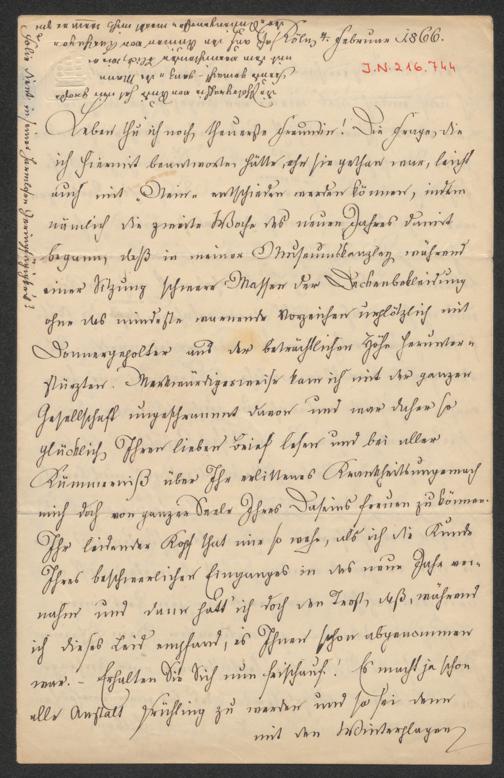 Köln, 4. Februar 1866.
I.N. 216.744
Leben thu' ich noch, theuerste Freundin! Die Frage, die
ich hiermit beantwortet hätte, ehe sie gethan war, leicht
auch mit „Nein“ entschieden werden können, indem
nämlich die zweite Woche des neuen Jahres damit
begann, daß in meiner Museumskanzley während
einer Sitzung schwere Massen der Deckenbekleidung
ohne das mindeste warnende Vorzeichen urplötzlich mit
Donnergepolter aus der beträchtlichen Höhe herunter-
stürzten. Merkwürdigerweise kam ich mit der ganzen
Gesellschaft ungeschrammt davon und war daher so
glücklich Ihren lieben Brief lesen und bei aller
Kümmerniß über Ihr erlittenes Krankheitsungemach
mich doch von ganzer Seele Ihres Daseins freuen zu können.
Ihr leidender Kopf that mir so wehe, als ich die Kunde
Ihres beschwerlichen Einganges in das neue Jahr ver-
nahm und dann hatt' ich doch den Trost, daß, während
ich dieses Leid empfand, es Ihnen schon abgenommen
war. – Erhalten Sie Sich nun frischauf! Es macht ja schon
alle Anstalt Frühling zu werden und so sei denn
mit den Winterplagen